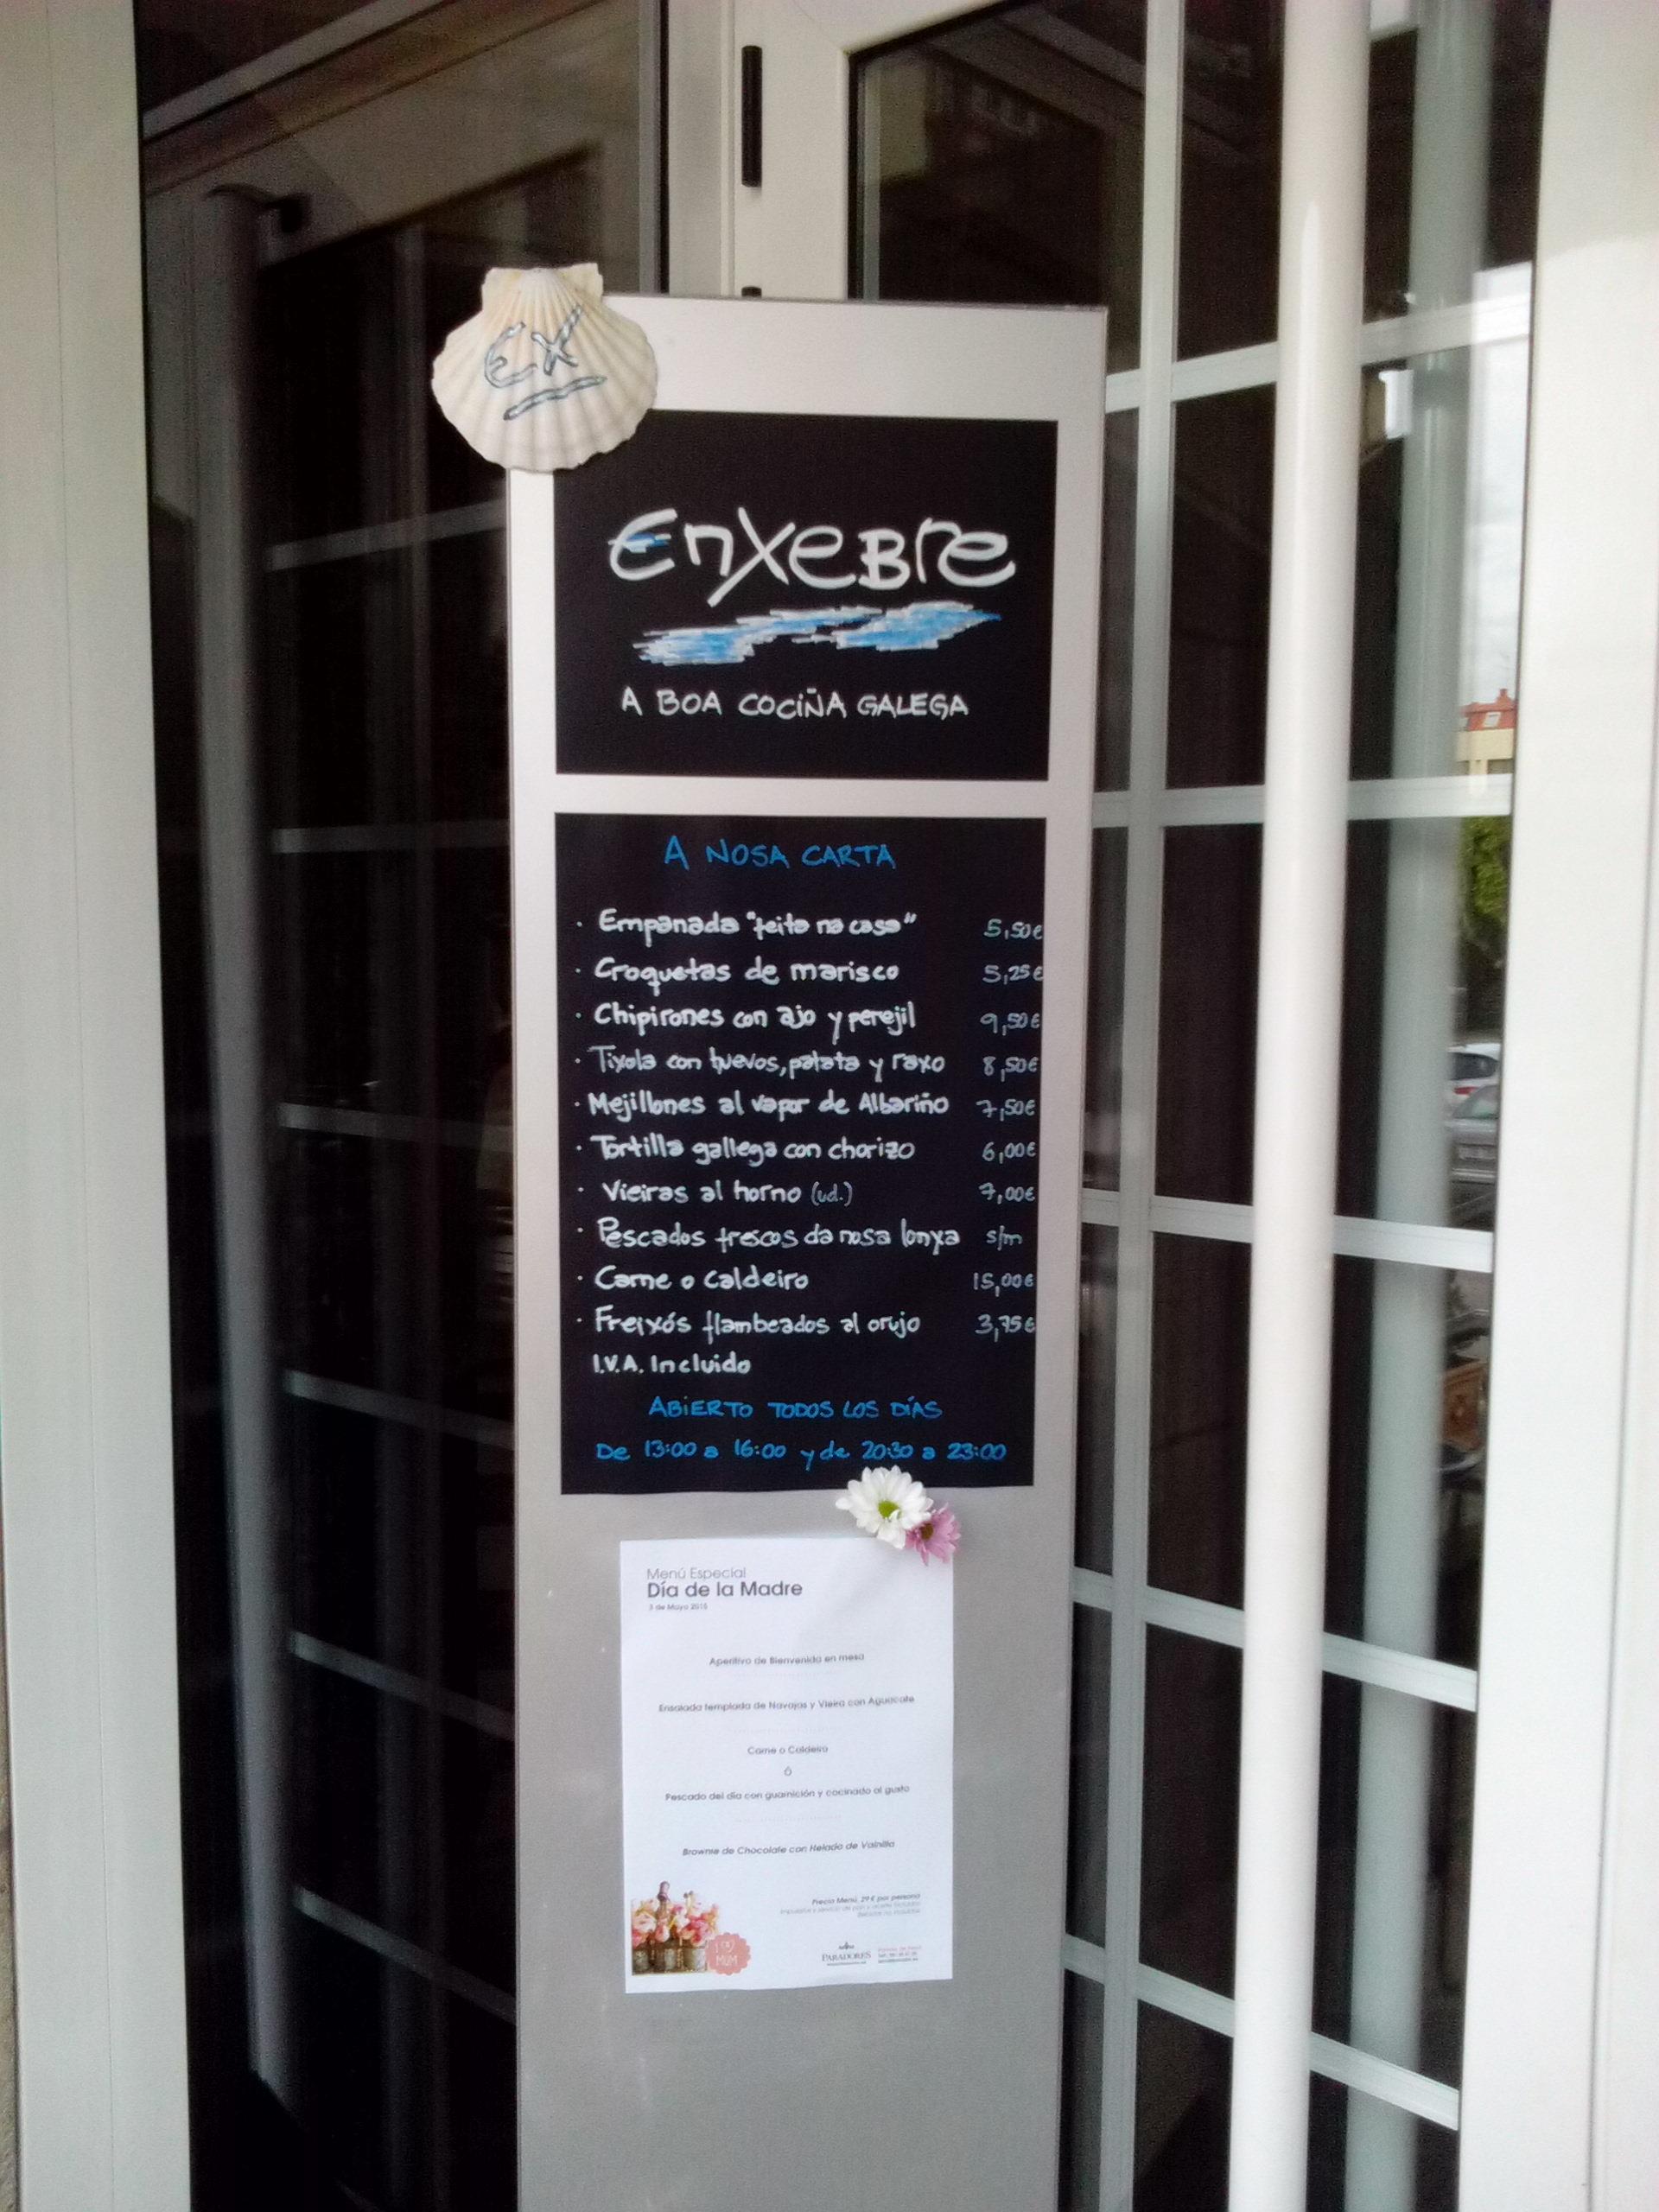 EX
EnXeBre
A BOA COCIÑA GALEGA
A NOSA CARTA
· Empanada "feita na casa" 5,50€
· Croquetas de marisco 5,25€
· Chipirones con ajo y perejil 9,50€
· Tixola con huevos, patata y raxo 8,50€
· Mejillones al vapor de Albariño 7,50€
· Tortilla gallega con chorizo 6,00€
· Vieiras al horno (ud.) 7,00€
· Pescados frescos da nosa lonxa s/m
· Carne o caldeiro 15,00€
· Freixós flambeados al orujo 3,75€
I.V.A. Incluido
ABIERTO TODOS LOS DÍAS
De 13:00 a 16:00 y de 20:30 a 23:00
Menú Especial
Día de la Madre
3 de Mayo 2015
Aperitivo de Bienvenida en mesa
Ensalada templada de Navajas y Vieira con Aguacate
Carne o Caldeiro
ó
Pescado del día con guarnición y cocinado al gusto
Brownie de Chocolate con Helado de Vainilla
Precio Menú, 29 € por persona
MUM
PARADORES